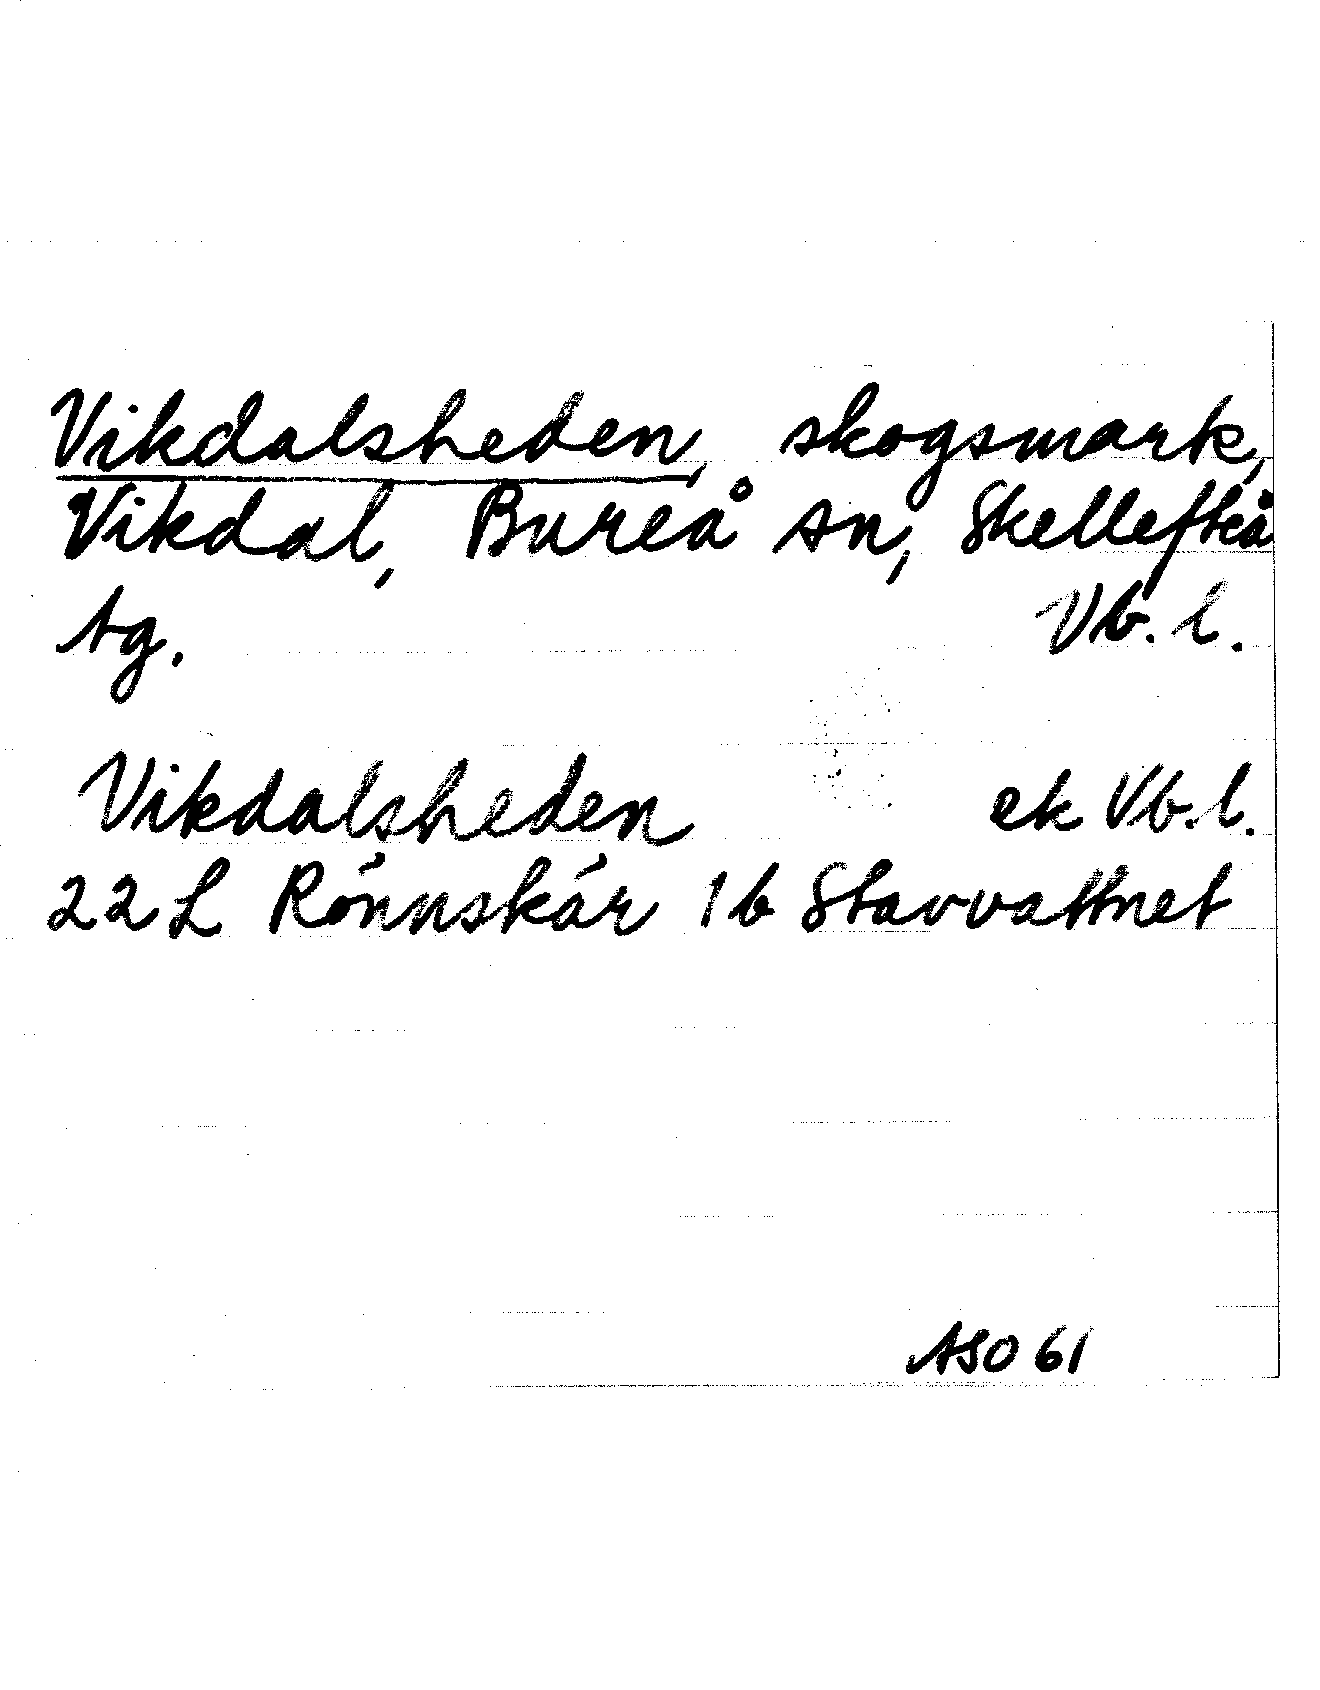 Vikdalsheden, skogsmark,
Vikdal, Bureå sn, Skellefteå
tg. Vb. l.
Vikdalsheden ek Vb. l.
22 L Rönnskär 1 b Stavvattnet
ASO 61